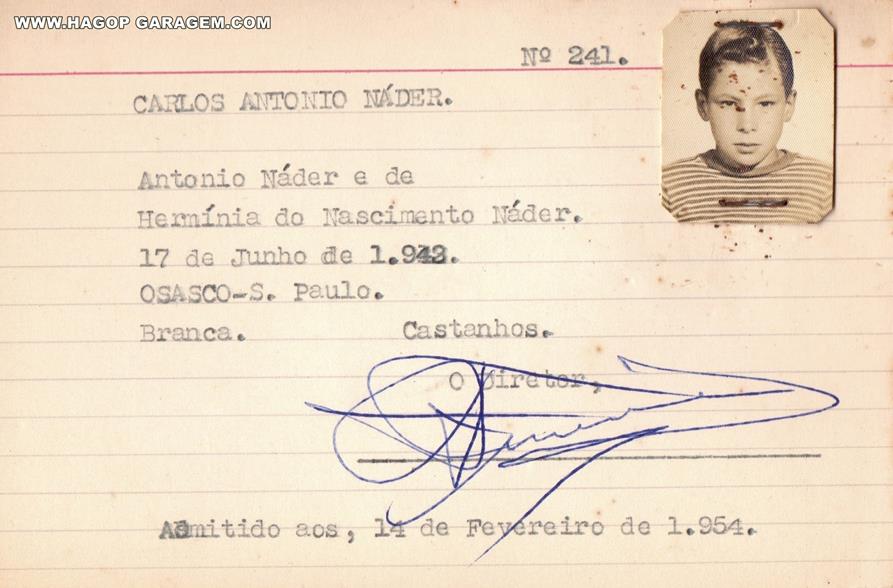 WWW.HAGOP GARAGEM.COM
Nº 241.
CARLOS ANTONIO NÁDER.
Antonio Náder e de
Hermínia do Nascimento Náder.
17 de Junho de 1.942.
OSASCO-S. Paulo.
Branca. Castanhos.
O Diretor,
Admitido aos, 14 de Fevereiro de 1.954.